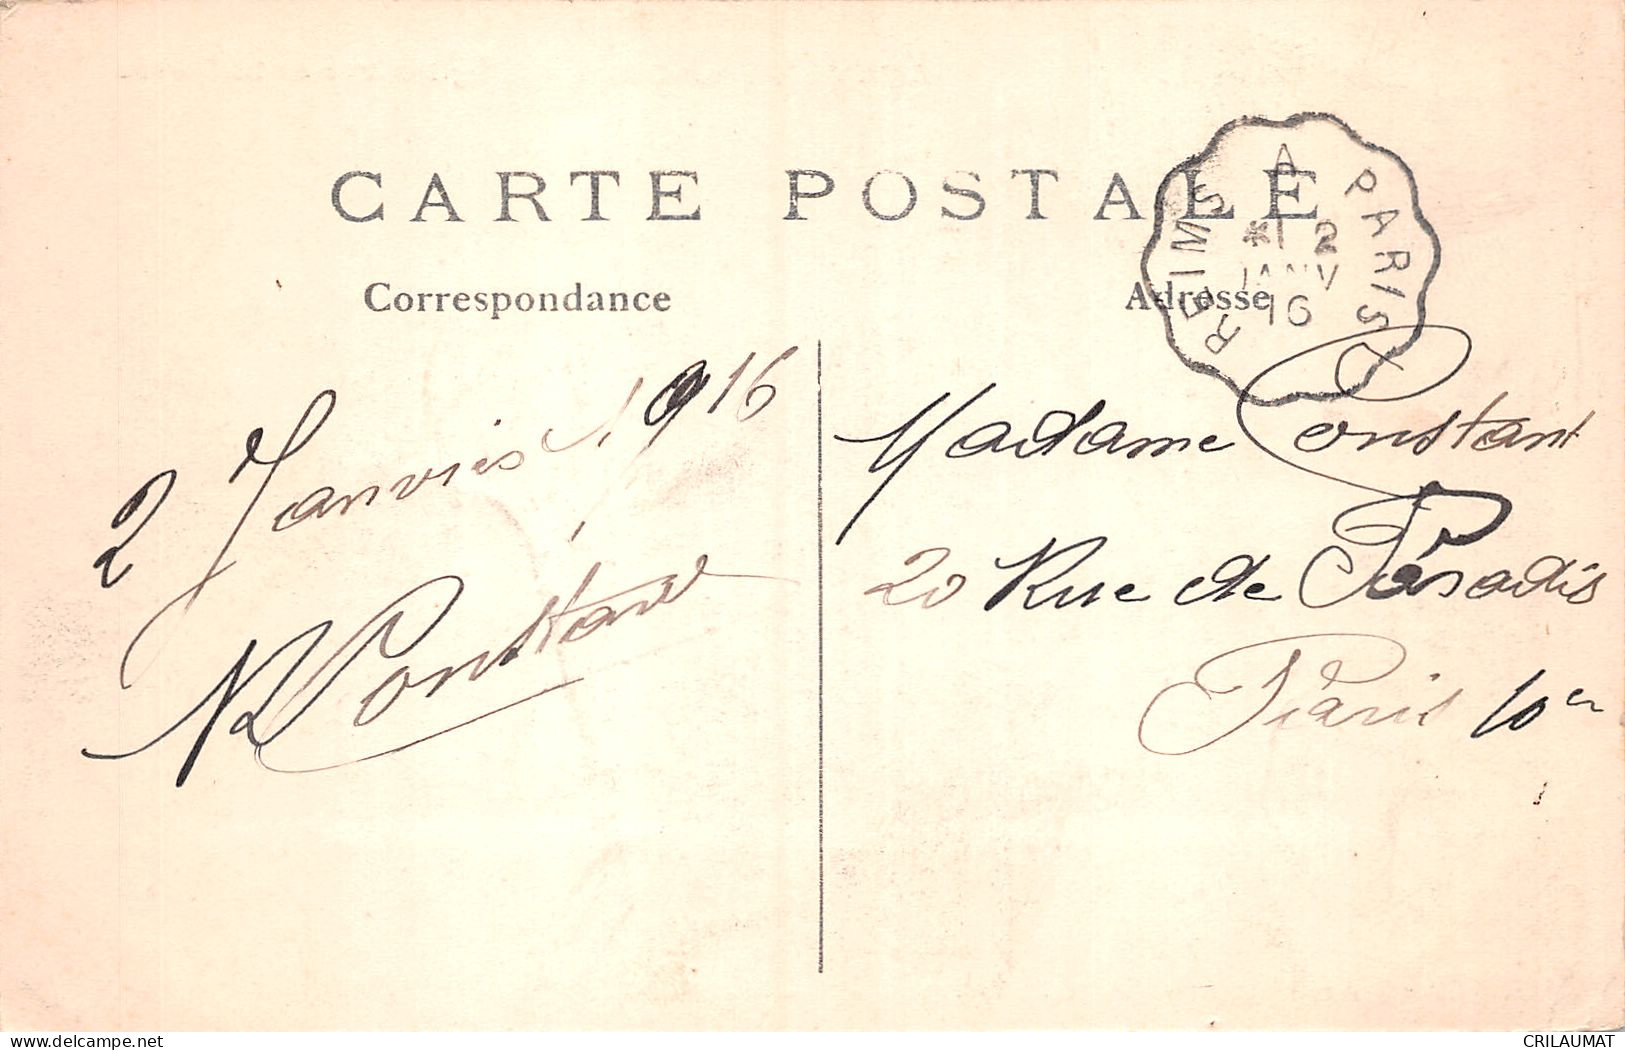 CARTE POSTALE
Correspondance
Adresse
REIMS A PARIS
*1 2
JANV
16
2 Janvier 1916
N Constant
Madame Constant
20 Rue de Paradis
Paris 10er
delcampe.net
CRILAUMAT